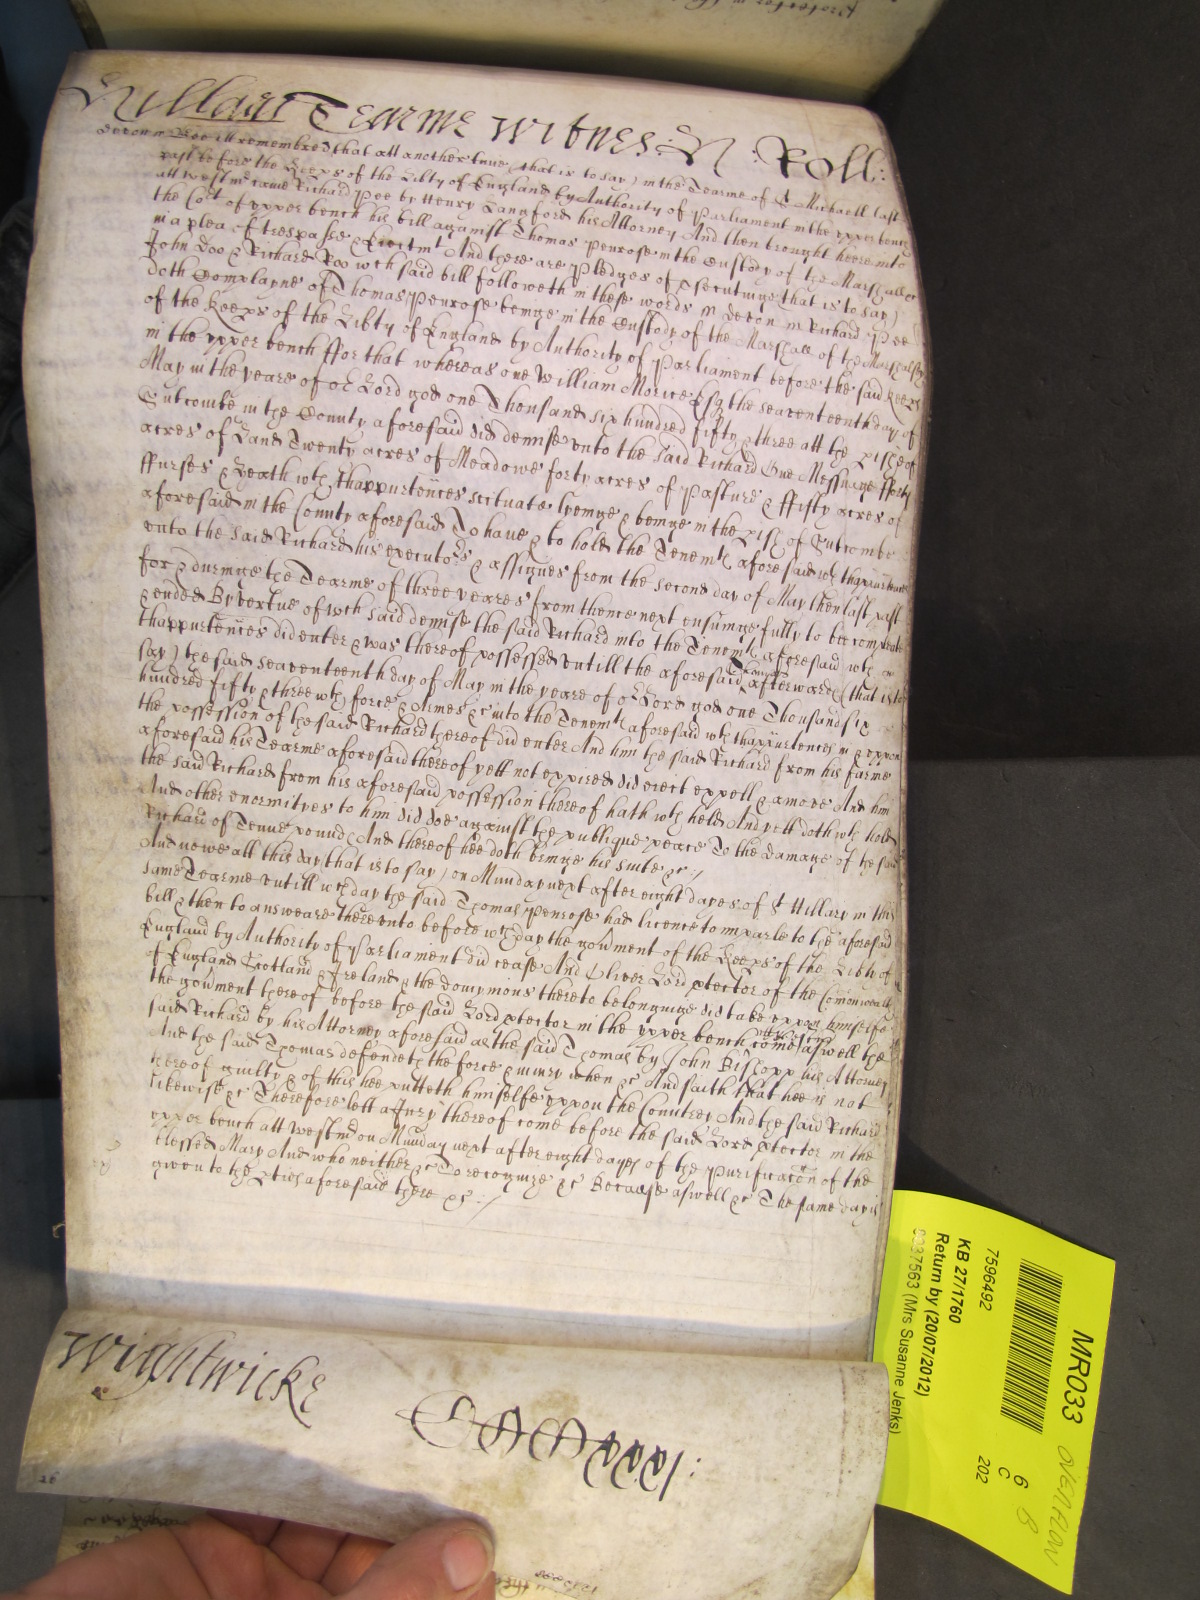 Hillarii Tearme Witnes: H: Roll:
Devon ss Bee itt remembred that att another tyme (that is to say) in the Tearme of St Michaell last
past before the Keeps of the Libty of England by Authority of Parliament in the upper bench
att Westmr came Richard Pee by Henry Langford his Attorney And then brought heere into
the Cort of upper bench his bill against Thomas Penrose in the Custody of the Marshall &c
in a plea of trespasse & Eiectmt And there are pledges of psecutinge (that is to say)
John Doo & Richard Roo wch said bill followeth in these words ss Devon ss Richard Pee
doth Complayne of Thomas Penrose beinge in the Custody of the Marshall of the Marshalsey
of the Keeps of the Libty of England by Authority of Parliament before the said Keeps
in the upper bench ffor that whereas one William Morice Esq the seaventeenth day of
May in the yeare of or Lord god one Thousand six hundred fifty & three att the pish of
Sutcombe in the County aforesaid did demise unto the said Richard One Messuage fforty
acres of Land Twenty acres of Meadowe forty acres of pasture & ffifty acres of
ffurses & heath wth thappurtences scituate lyeinge & beinge in the pish of Sutcombe
aforesaid in the County aforesaid To have & to hold the Tenemts aforesaid wth thappurtences
unto the said Richard his executors & assignes from the second day of May then last past
for & duringe the Tearme of three yeares from thence next ensuinge fully to bee compleate
& ended By vertue of wch said demise the said Richard into the Tenemts aforesaid wth
thappurtences did enter & was thereof possessed untill the aforesaid Thomas afterwards (that is to
say) the said seaventeenth day of May in the yeare of or Lord god one Thousand six
hundred fifty & three wth force & Armes &c into the Tenemts aforesaid wth thappurtences in & uppon
the possession of the said Richard thereof did enter And him the said Richard from his farme
aforesaid his Tearme aforesaid thereof yett not expired did eiect expell & amove And him
the said Richard from his aforesaid possession thereof hath wth held And yett doth wth hold
And other enormityes to him did doe against the publique peace To the damage of the said
Richard of Tenne pounds And thereof hee doth bringe his suite &c:/
And nowe att this day (that is to say) on Munday next after eight dayes of St Hillary in this
same Tearme untill wch day the said Thomas Penrose had licence to imparle to the aforesaid
bill & then to answeare thereunto before wch day the govment of the Keeps of the Libty of
England by Authority of Parliament did cease And Oliver Lord ptector of the Comonwealth
of England Scotland & Ireland & the dominions thereto belonginge did take uppon himselfe
the govment thereof before the said Lord ptector in the upper bench come aswell the
said Richard by his Attorney aforesaid as the said Thomas by John Bishopp his Attorney
And the said Thomas defendeth the force & iniury when &c And saith that hee is not
thereof guilty & of this hee putteth himselfe uppon the Countrey And the said Richard
likewise &c Therefore lett a Jury thereof come before the said Lord ptector in the
upper bench att Westmr on Munday next after eight dayes of the purificacon of the
blessed Mary And who neither &c To recognize &c Because aswell &c The same day is
given to the pties aforesaid there &c:/
Wightwicke
MR033
7596492
KB 27/1760
Return by (20/07/2012)
(Mrs Susanne Jenks)
6
C
202
OVERFLOW
B